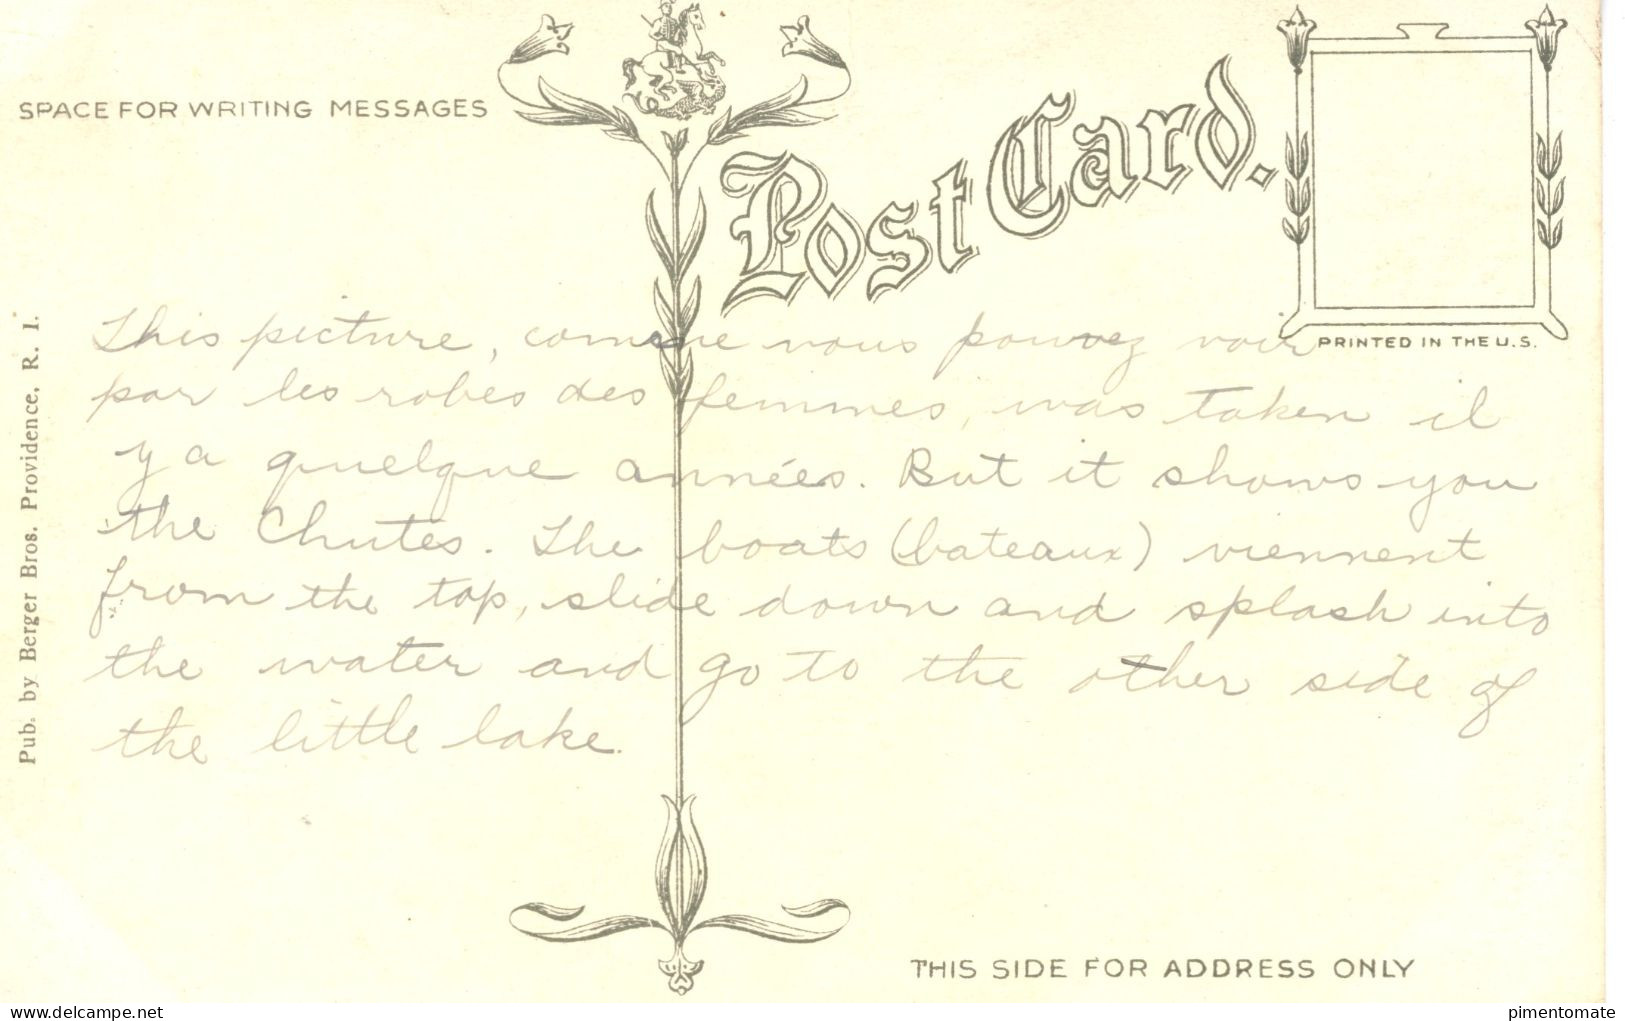 SPACE FOR WRITING MESSAGES
Post Card.
PRINTED IN THE U.S.
Pub. by Berger Bros. Providence, R. I.
This picture, comme vous pouvez voir
par les robes des femmes, was taken il
y a quelque années. But it shows you
the Chutes. The boats (bateaux) viennent
from the top, slide down and splash into
the water and go to the other side of
the little lake.
THIS SIDE FOR ADDRESS ONLY
www.delcampe.net
pimentomate